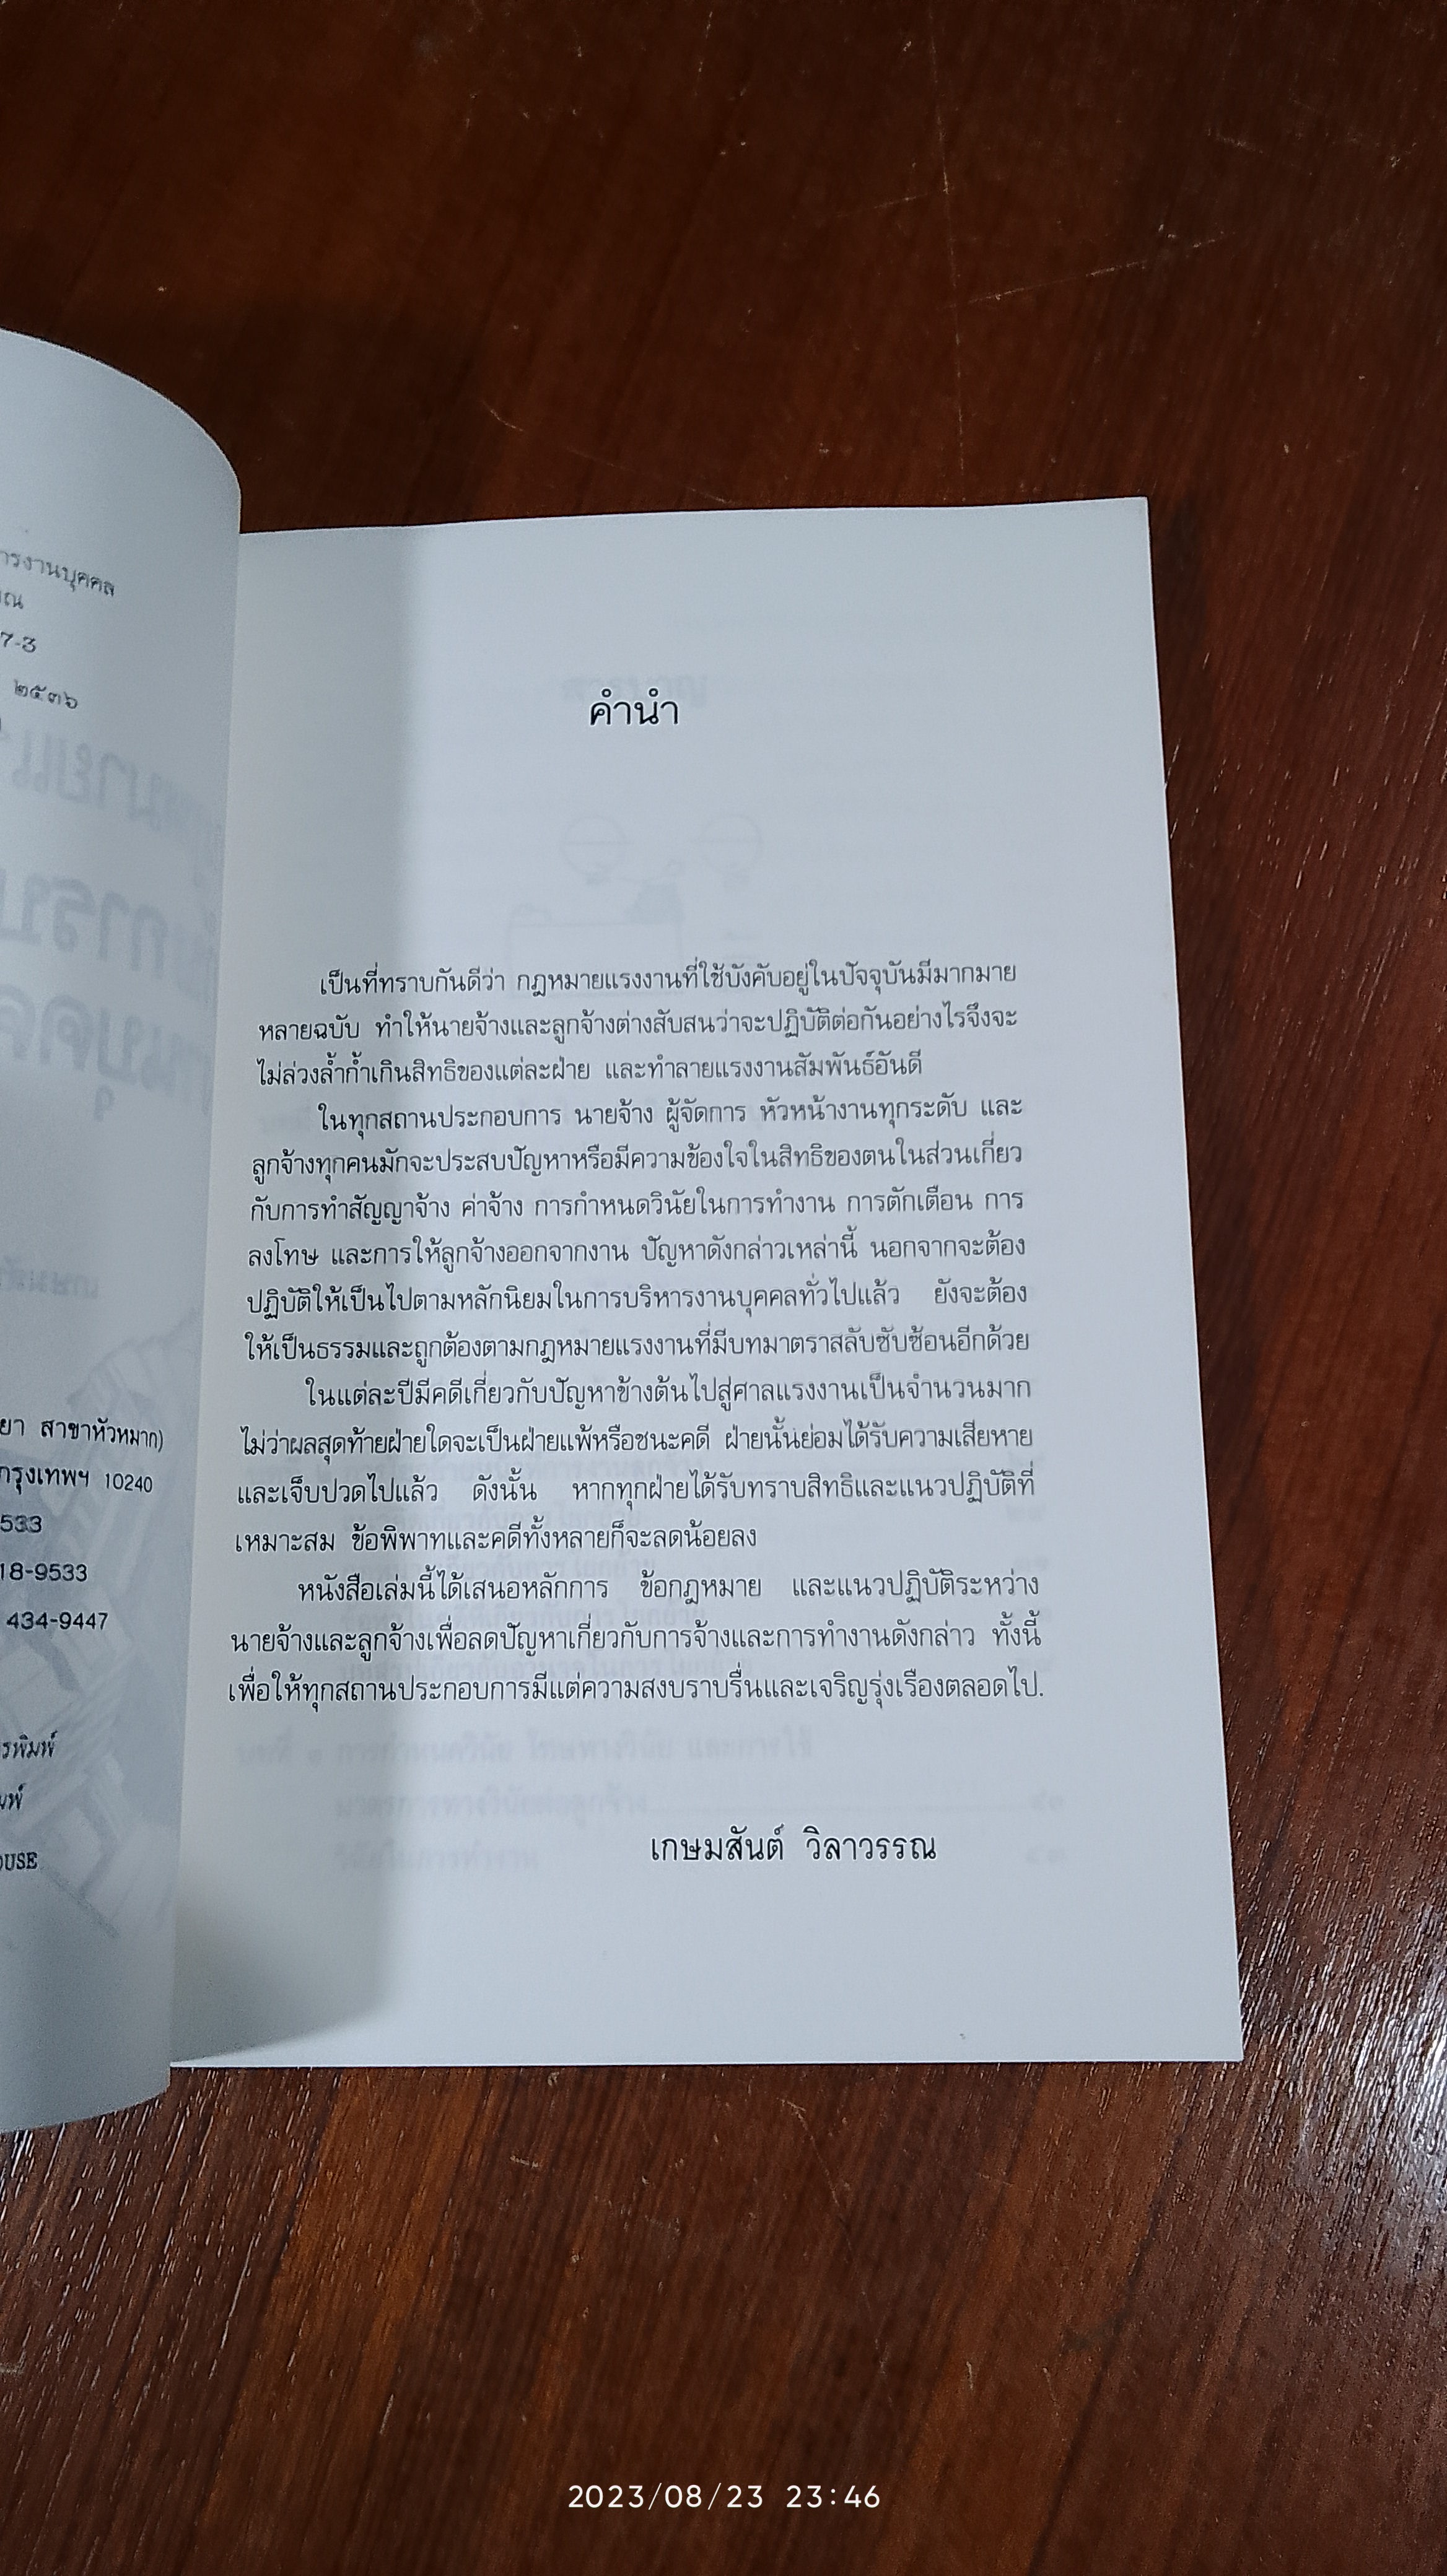 ารงานบุคคล
รณ
7-3
๒๕๓๖
ยา สาขาหัวหมาก)
กรุงเทพฯ 10240
533
18-9533
434-9447
รพิมพ์
มพ์
OUSE
คำนำ
เป็นที่ทราบกันดีว่า กฎหมายแรงงานที่ใช้บังคับอยู่ในปัจจุบันมีมากมาย
หลายฉบับ ทำให้นายจ้างและลูกจ้างต่างสับสนว่าจะปฏิบัติต่อกันอย่างไรจึงจะ
ไม่ล่วงล้ำก้ำเกินสิทธิของแต่ละฝ่าย และทำลายแรงงานสัมพันธ์อันดี
ในทุกสถานประกอบการ นายจ้าง ผู้จัดการ หัวหน้างานทุกระดับ และ
ลูกจ้างทุกคนมักจะประสบปัญหาหรือมีความข้องใจในสิทธิของตนในส่วนเกี่ยว
กับการทำสัญญาจ้าง ค่าจ้าง การกำหนดวินัยในการทำงาน การตักเตือน การ
ลงโทษ และการให้ลูกจ้างออกจากงาน ปัญหาดังกล่าวเหล่านี้ นอกจากจะต้อง
ปฏิบัติให้เป็นไปตามหลักนิยมในการบริหารงานบุคคลทั่วไปแล้ว ยังจะต้อง
ให้เป็นธรรมและถูกต้องตามกฎหมายแรงงานที่มีบทมาตราสลับซับซ้อนอีกด้วย
ในแต่ละปีมีคดีเกี่ยวกับปัญหาข้างต้นไปสู่ศาลแรงงานเป็นจำนวนมาก
ไม่ว่าผลสุดท้ายฝ่ายใดจะเป็นฝ่ายแพ้หรือชนะคดี ฝ่ายนั้นย่อมได้รับความเสียหาย
และเจ็บปวดไปแล้ว ดังนั้น หากทุกฝ่ายได้รับทราบสิทธิและแนวปฏิบัติที่
เหมาะสม ข้อพิพาทและคดีทั้งหลายก็จะลดน้อยลง
หนังสือเล่มนี้ได้เสนอหลักการ ข้อกฎหมาย และแนวปฏิบัติระหว่าง
นายจ้างและลูกจ้างเพื่อลดปัญหาเกี่ยวกับการจ้างและการทำงานดังกล่าว ทั้งนี้
เพื่อให้ทุกสถานประกอบการมีแต่ความสงบราบรื่นและเจริญรุ่งเรืองตลอดไป.
เกษมสันต์ วิลาวรรณ
2023/08/23 23:46